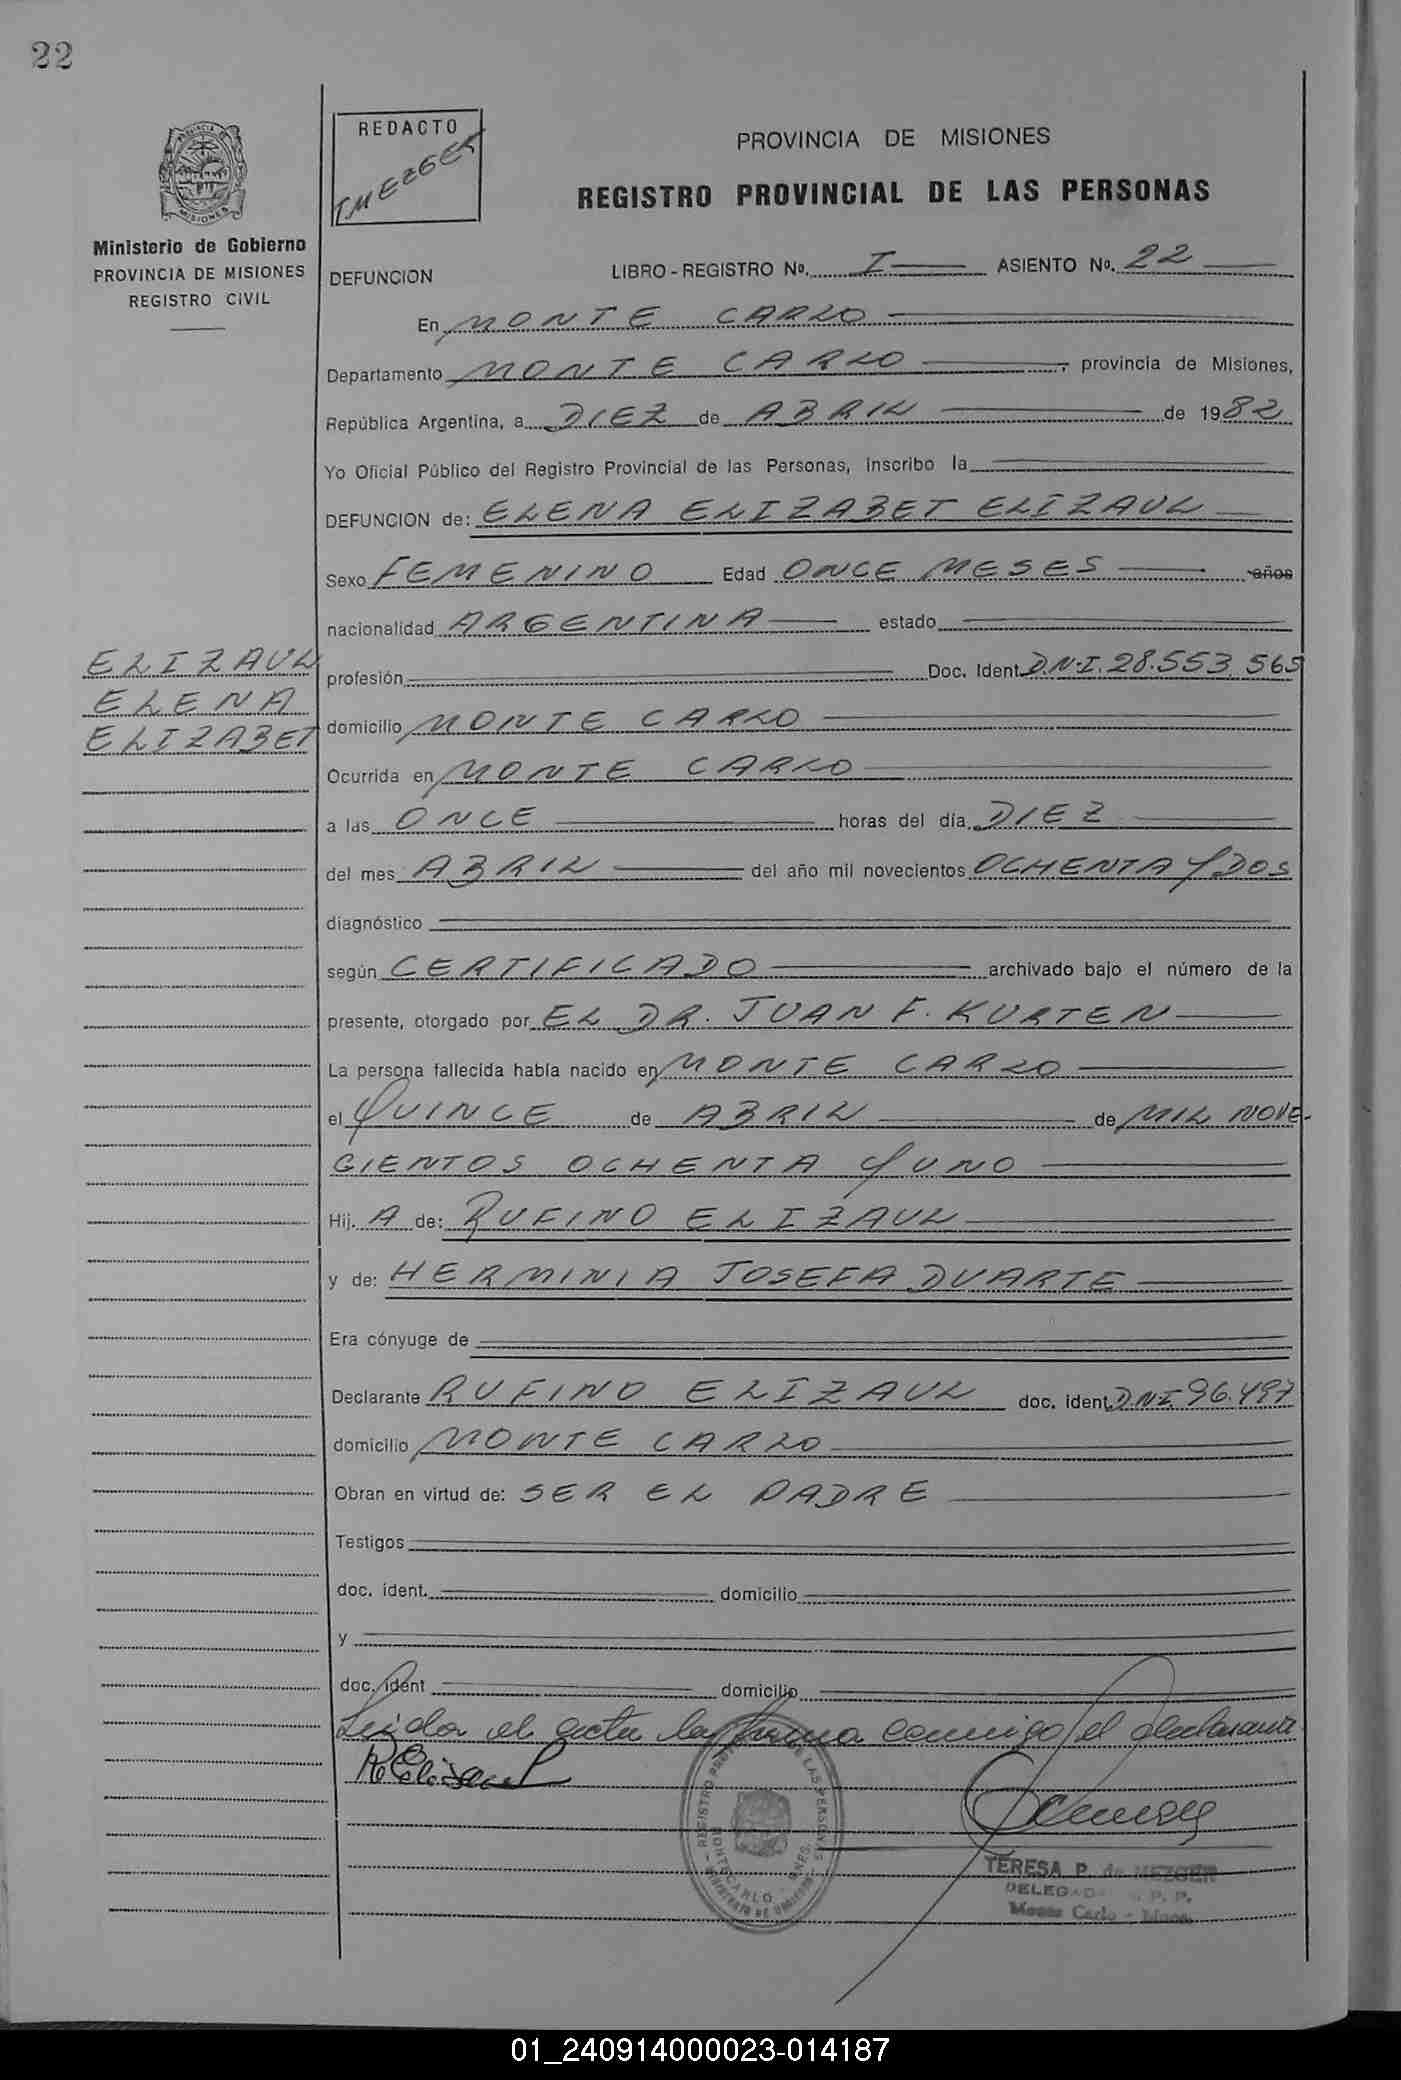 22
REDACTO
T MEZGER
PROVINCIA DE MISIONES
REGISTRO PROVINCIAL DE LAS PERSONAS
Ministerio de Gobierno
PROVINCIA DE MISIONES
REGISTRO CIVIL
DEFUNCION LIBRO - REGISTRO No. I ASIENTO No. 22
En MONTE CARLO
Departamento MONTE CARLO, provincia de Misiones,
República Argentina, a DIEZ de ABRIL de 1982
Yo Oficial Público del Registro Provincial de las Personas, inscribo la
DEFUNCION de: ELENA ELIZABET ELIZAUL
Sexo FEMENINO Edad ONCE MESES años
nacionalidad ARGENTINA estado
ELIZAUL
ELENA
ELIZABET
profesión Doc. Ident. D.N.I. 28.553.565
domicilio MONTE CARLO
Ocurrida en MONTE CARLO
a las ONCE horas del día DIEZ
del mes ABRIL del año mil novecientos OCHENTA Y DOS
diagnóstico
según CERTIFICADO archivado bajo el número de la
presente, otorgado por EL DR. JUAN F. KURTEN
La persona fallecida había nacido en MONTE CARLO
el QUINCE de ABRIL de MIL NOVE-
CIENTOS OCHENTA Y UNO
Hij. A de: RUFINO ELIZAUL
y de: HERMINIA JOSEFA DUARTE
Era cónyuge de
Declarante RUFINO ELIZAUL doc. ident. D.N.I. 96.497
domicilio MONTE CARLO
Obran en virtud de: SER EL PADRE
Testigos
doc. ident. domicilio
y
doc. ident domicilio
Leida el acta la firma conmigo el declarante
R Elizaul
TERESA P. de MEZGER
DELEGADA R. P. P.
Monte Carlo - Mnes.
01_240914000023-014187